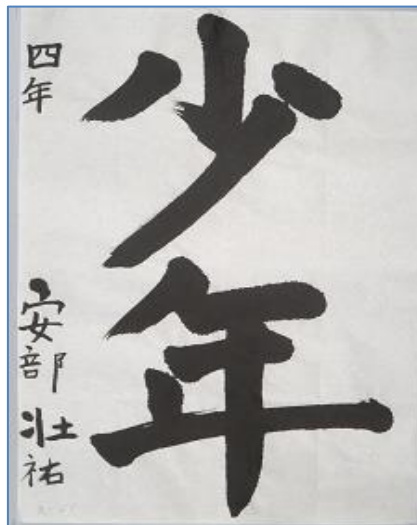 少年
四年
安部壮祐